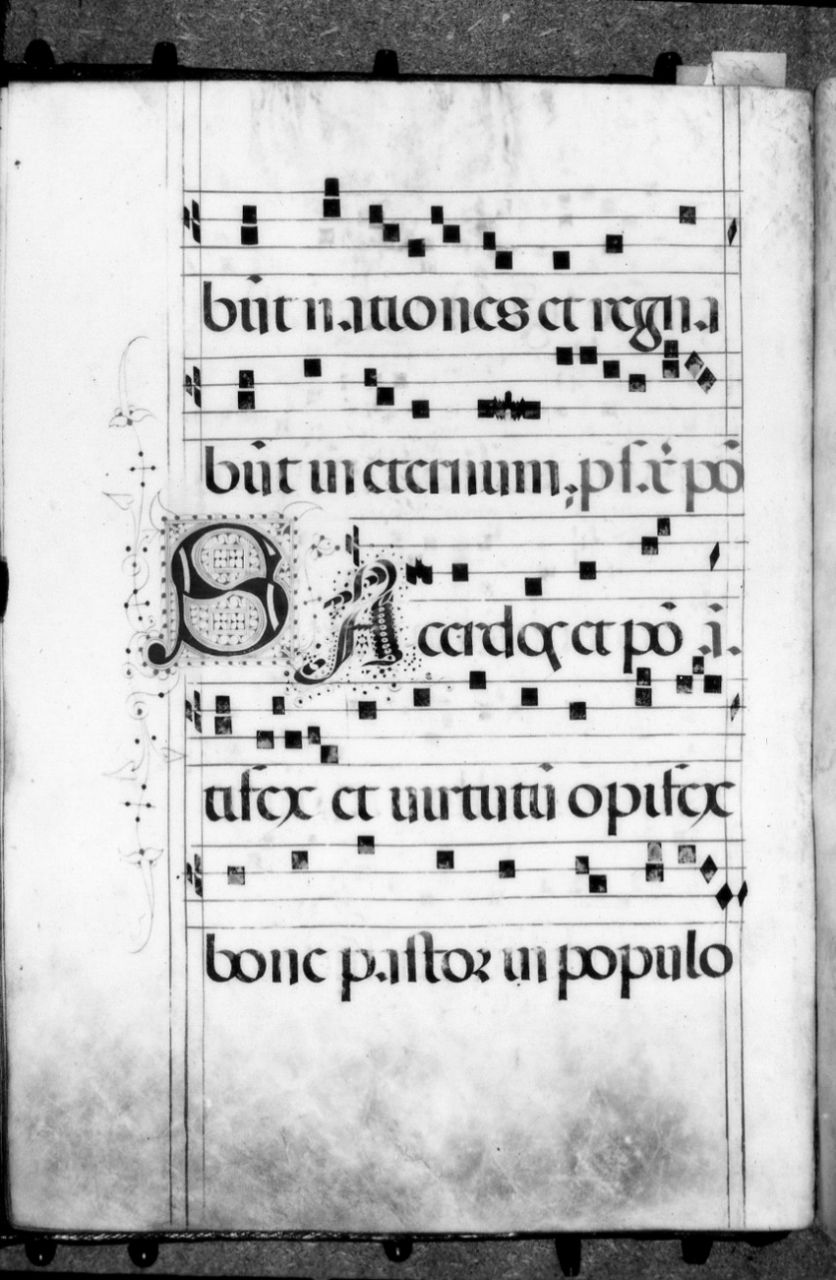 bũt nationes et regna
bũt in eternum, p ſ. x̄ põ
SAcerdos et põ .i.
tifex et uirtutũ opifex
bone paſtor in populo